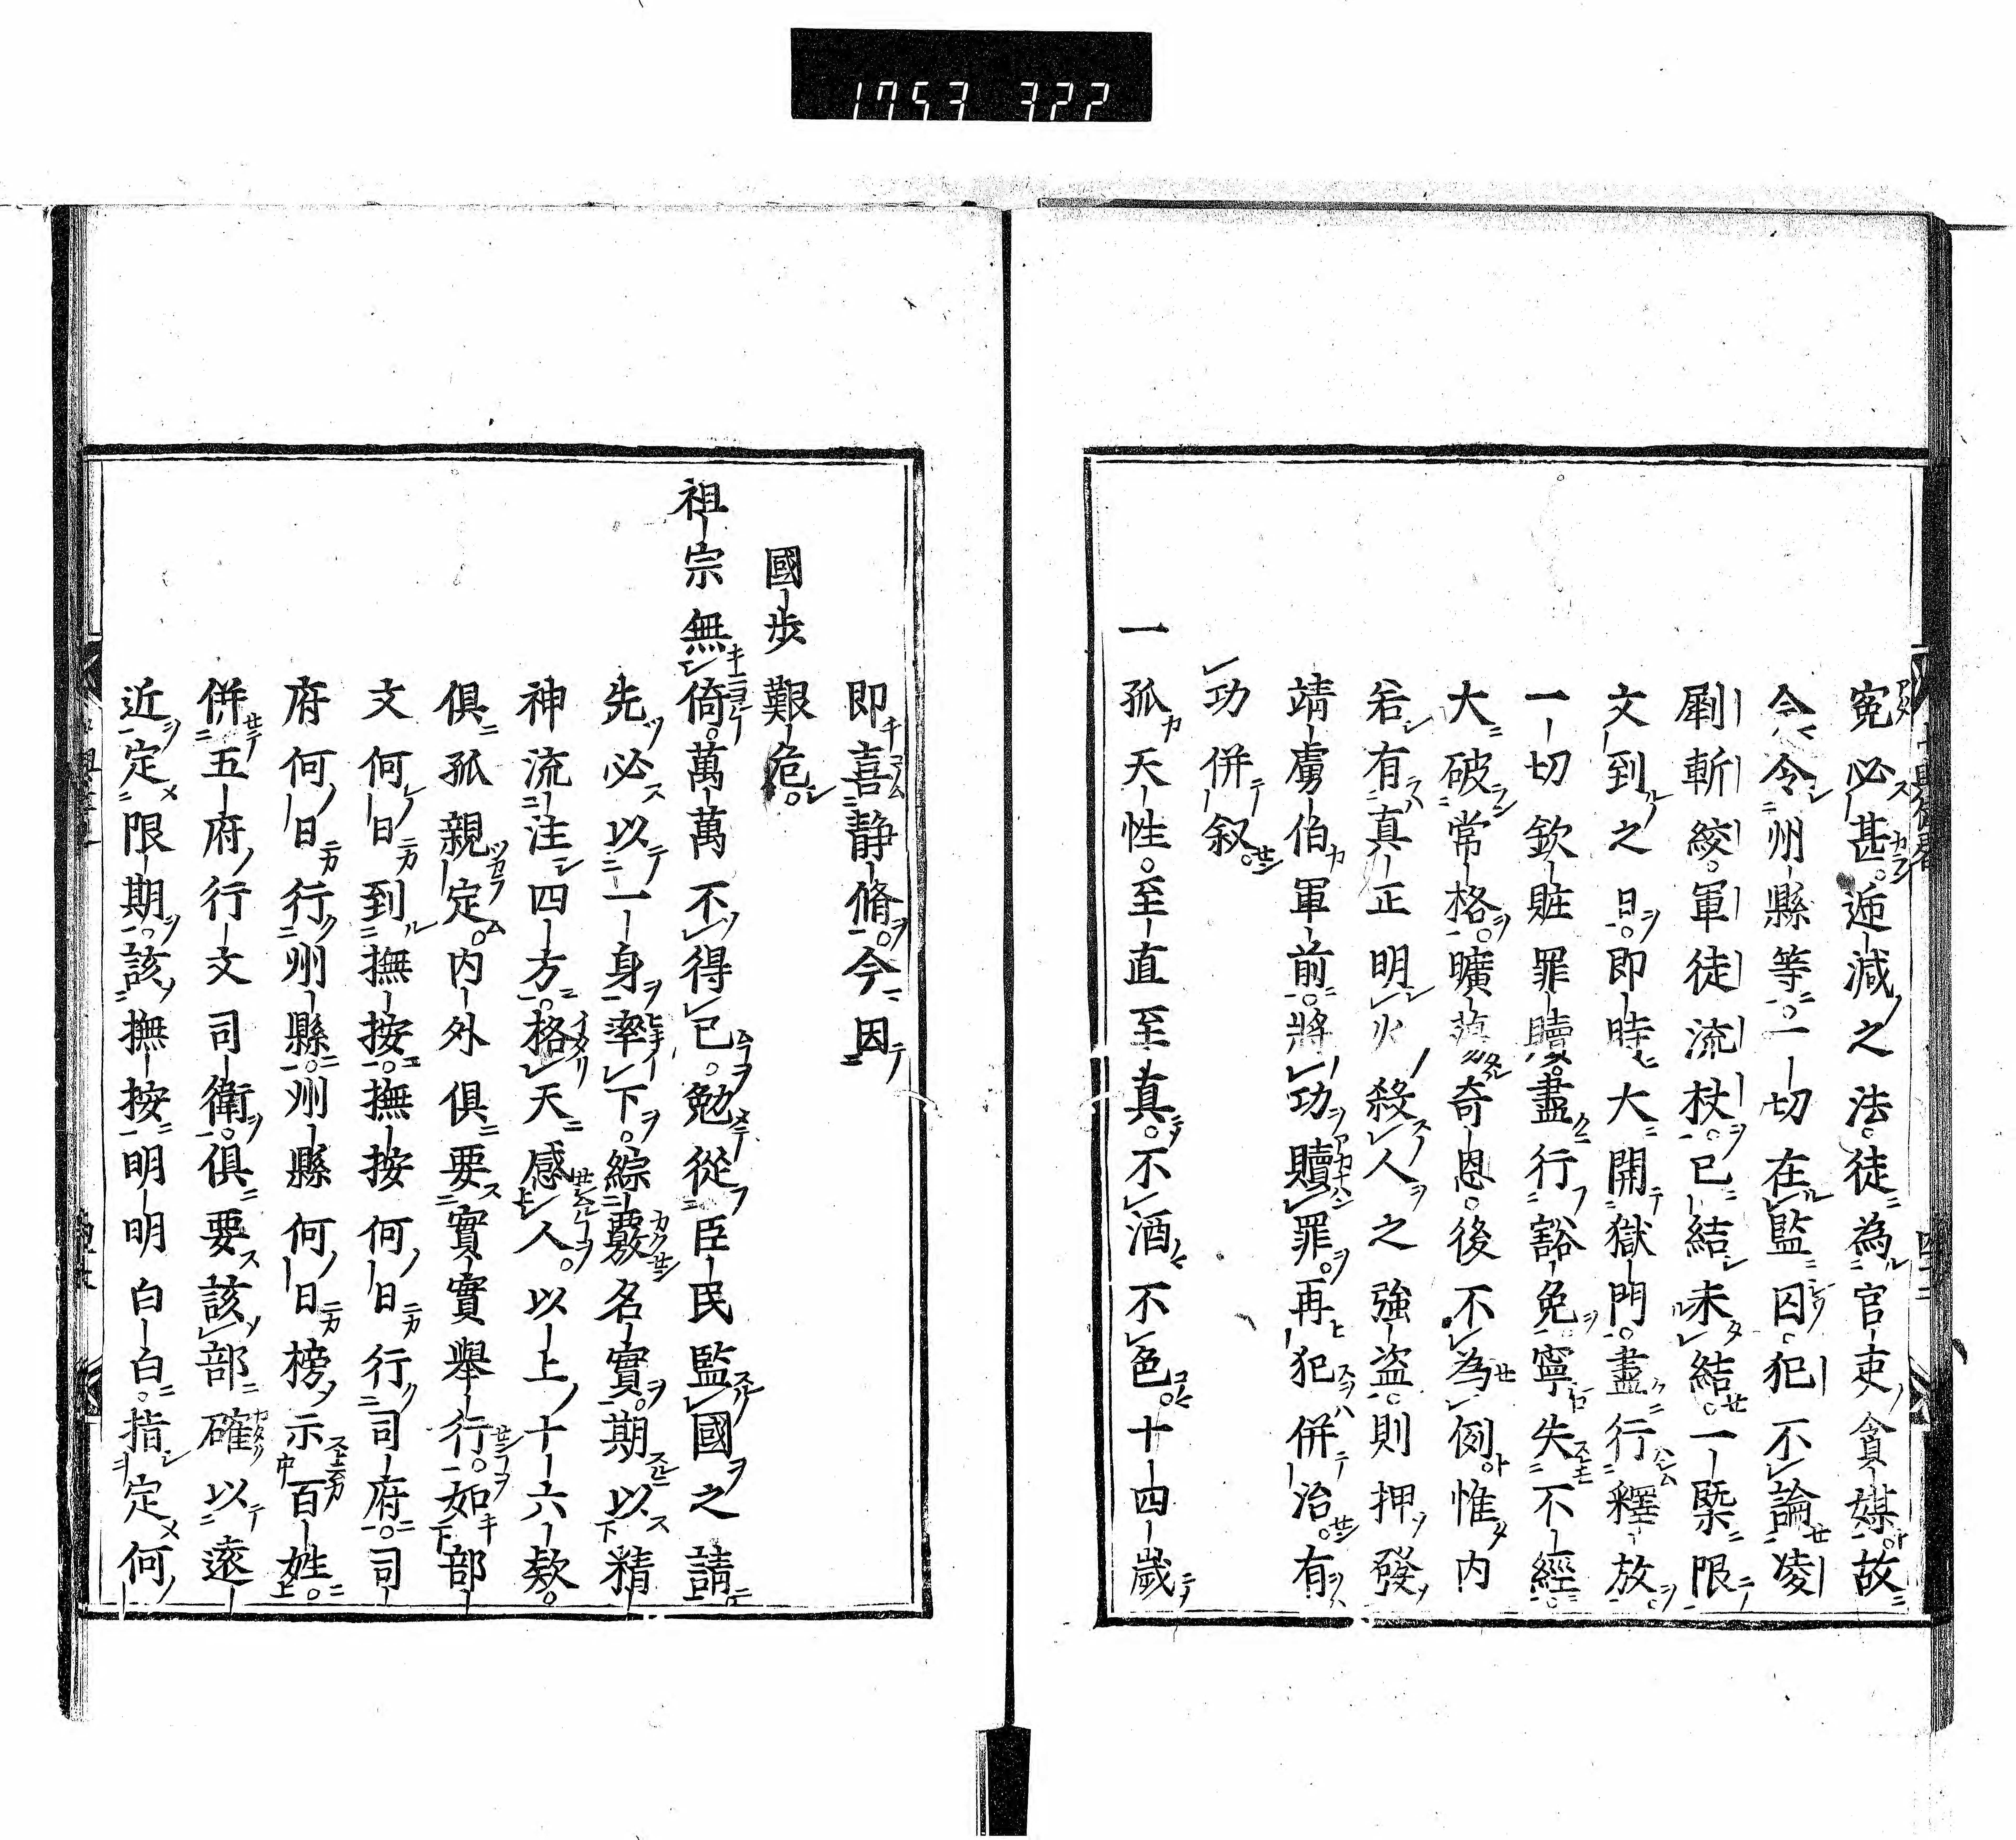 1753 322
冤必甚。遞減之法。徒為官吏貪媒。故
今令州縣等。一切在監囚。犯不論凌
剮斬絞。軍徒流杖。已結未結。一槩限
文到之日。即時大開獄門。盡行釋放。
一切欽贓罪贖。盡行豁免。寧失不經。
大破常格。曠蕩奇恩。後不為例。惟內
若有真正明火殺人之強盜。則押發
靖虜伯軍前。將功贖罪。再犯併治。有
功併叙。
一孤天性。至直至真。不酒不色。十四歲
即喜靜脩。今因
國步艱危。
祖宗無倚。萬萬不得已。勉從臣民監國之請
先必以一身率下。綜覈名實。期以精
神流注四方。格天感人。以上十六欵。
俱孤親定。內外俱要實實舉行。如部
文何日到撫按。撫按何日行司府。司
府何日行州縣。州縣何日榜示百姓。
併五府行文司衛。俱要該部確以遠
近定限期。該撫按明明白白。指定何